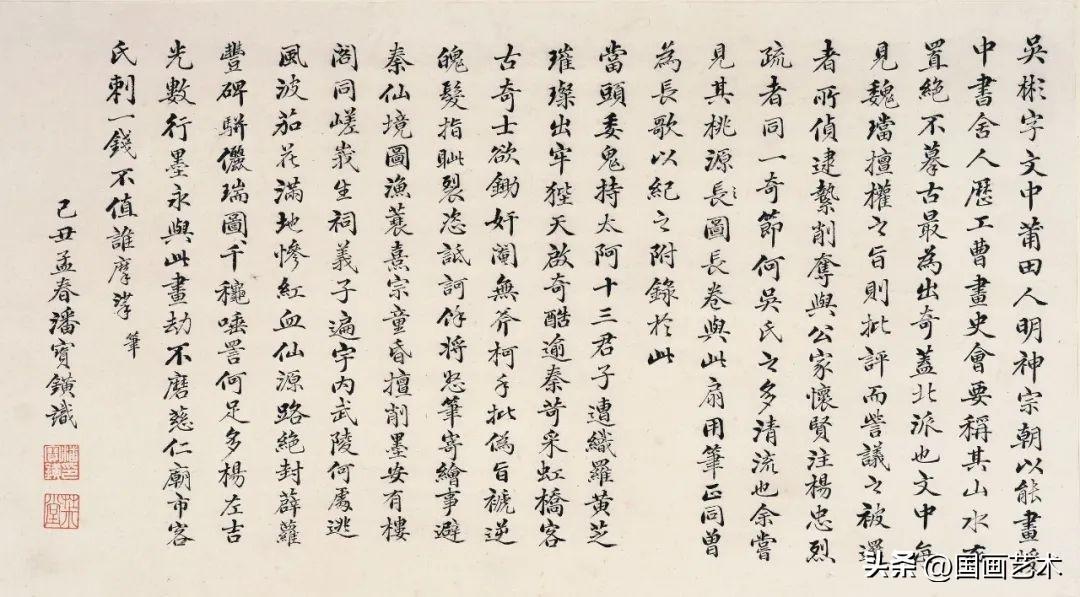 吳彬字文中莆田人明神宗朝以能畫授
中書舍人歷工曹畫史會要稱其山水布
置絕不摹古最為出奇蓋北派也文中每
見魏璫擅權之旨則批評而訾議之被邏
者所偵逮縶削奪與公家懷賢注楊忠烈
疏者同一奇節何吳氏之多清流也余嘗
見其桃源長圖長卷與此扇用筆正同曾
為長歌以紀之附錄於此
當頭委鬼持太阿十三君子遭織羅黃芝
璀璨出牢狴天啟奇酷逾秦苛采虹橋客
古奇士欲鋤奸閹無斧柯手批偽旨褫逆
魄髮指眦裂恣詆訶侘將怒筆寄繪事避
秦仙境圖漁蓑熹宗童昏擅削墨安有樓
閣同嵯峩生祠義子遍宇內武陵何處逃
風波茄花滿地慘紅血仙源路絕封薜蘿
豐碑駢儷瑞圖千穐唾詈何足多楊左吉
光數行墨永與此畫劫不磨慈仁廟市客
氏刺一錢不值誰摩挲 筆
己丑孟春潘寶鐄識
头条 @国画艺术